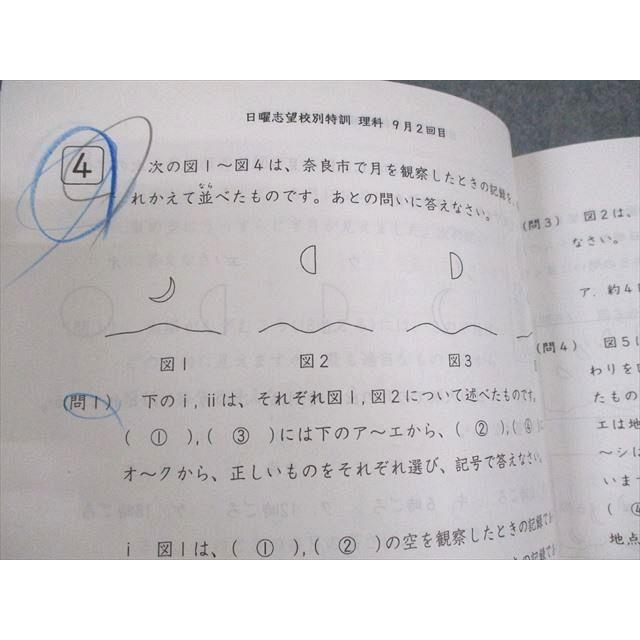 日曜志望校別特訓 理科 9月2回目
4
次の図1〜図4は、奈良市で月を観察したときの記録を、
なら
れかえて並べたものです。あとの問いに答えなさい。
図1
図2
図3
(問1) 下のⅰ,ⅱは、それぞれ図1,図2について述べたものです。
( ① ),( ③ )には下のア〜エから、( ② ),( ④ )に
オ〜クから、正しいものをそれぞれ選び、記号で答えなさい。
ⅰ 図1は、( ① ),( ② )の空を観察したときの記録で
(問3) 図2は、
なさい。
ア. 約4
(問4) 図5
わりを
たもの
エは地
〜シは
いま
( ④
地点